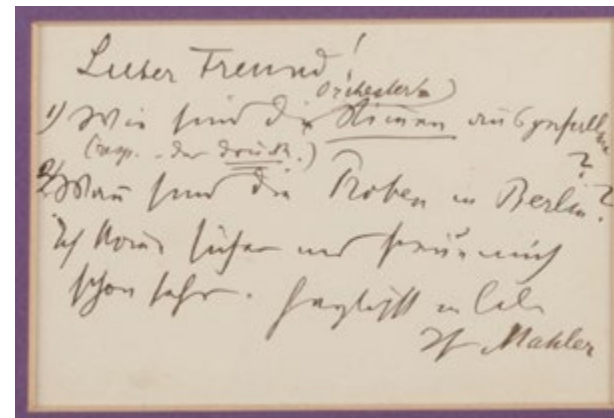 Lieber Freund!
1) Wie sind die (Orchester) Stimmen ausgefallen?
(resp. der Druck.)
2) Wann sind die Proben in Berlin?
Ich komme sicher und freue mich
schon sehr. Herzlichst in Eile
Ihr Mahler